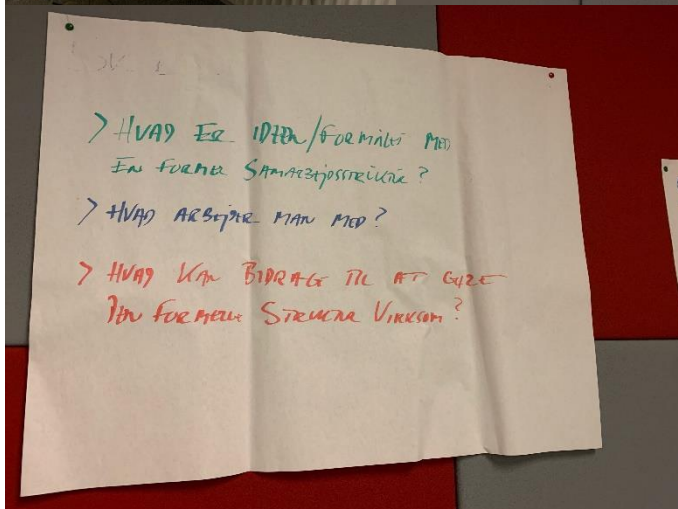 > HVAD ER IDEEN/FORMÅLET MED
EN FORMEL SAMARBEJDSSTRUKTUR?
> HVAD ARBEJDER MAN MED?
> HVAD KAN BIDRAGE TIL AT GØRE
DEN FORMELLE STRUKTUR VIRKSOM?